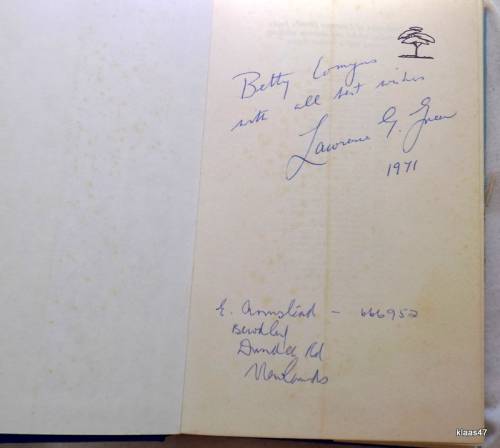 Betty Comyns
with all best wishes
Lawrence G. Green
1971
E. Armstead - 666952
Dundee Rd
Newlands
klaas47